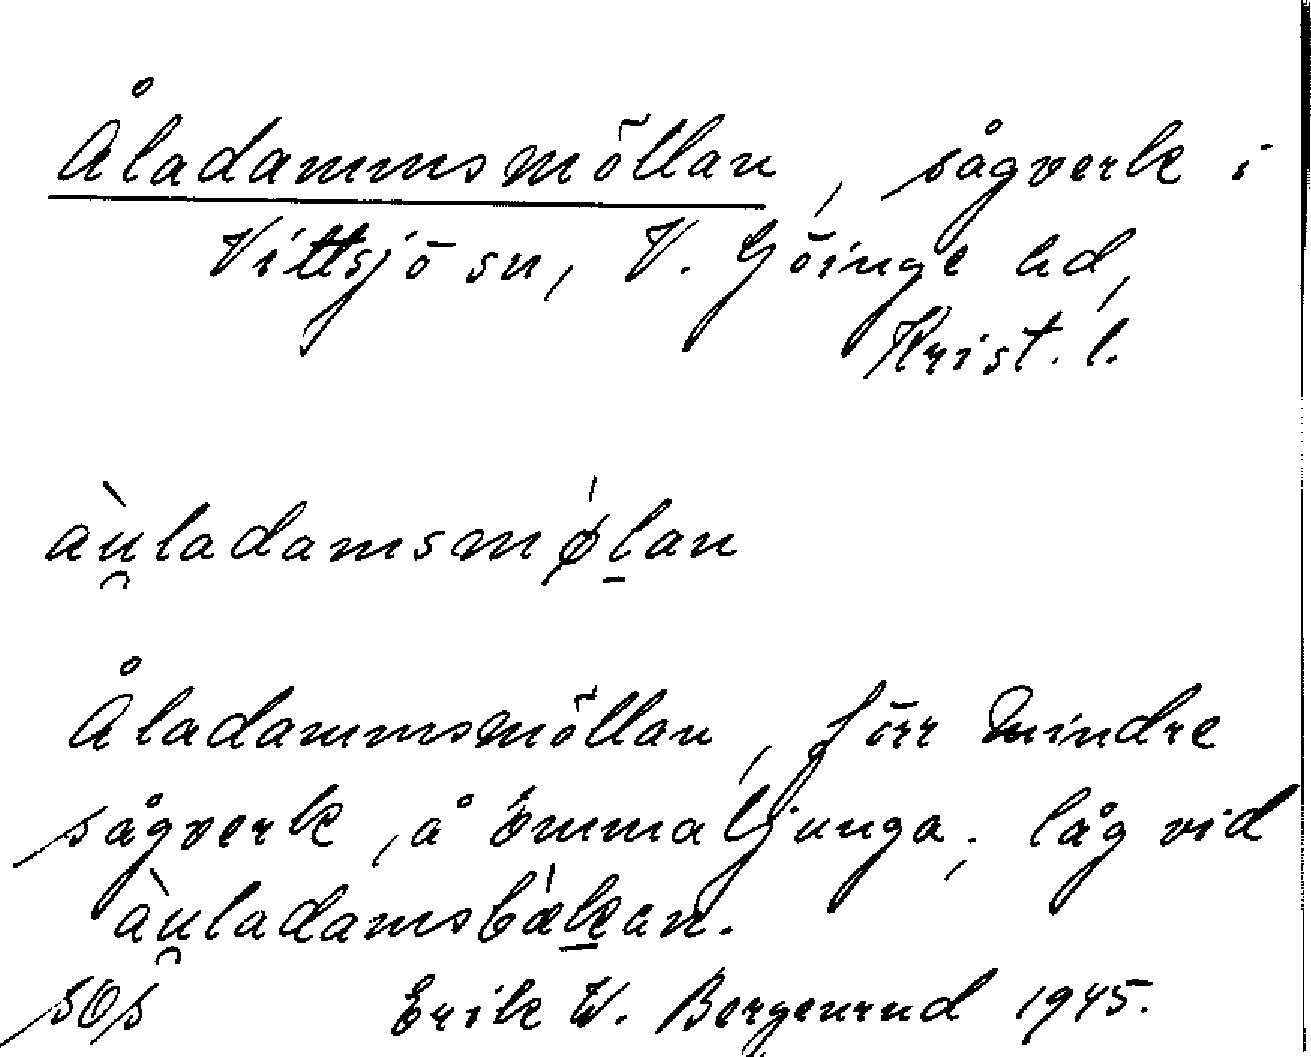 Åladammsmöllan, sågverk i
Vittsjö sn, V. Göinge hd,
Krist. l.
àu̯ladamsmø̍l̠an
Åladammsmöllan, förr mindre
sågverk, å Emmaljunga; låg vid
àu̯ladamsbæ̍k̠an.
sOs Erik W. Bergenrud 1945.